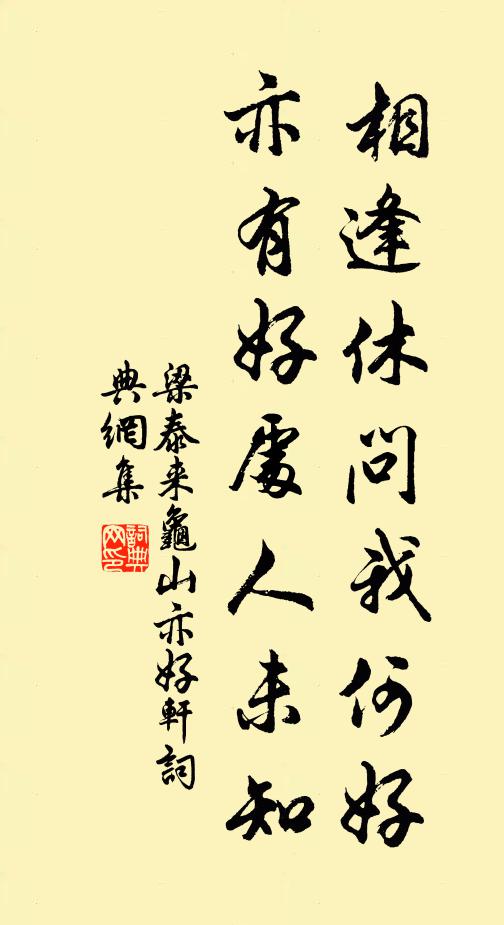 相逢休問我何好
亦有好處人未知
梁泰来龜山亦好軒詞
典網集
詞典
网印